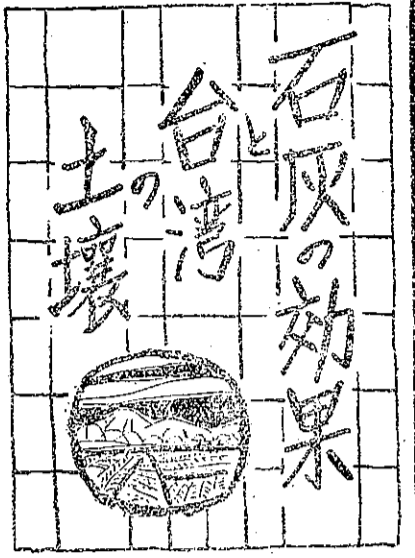 石灰の効果
と
台湾
の
土壌